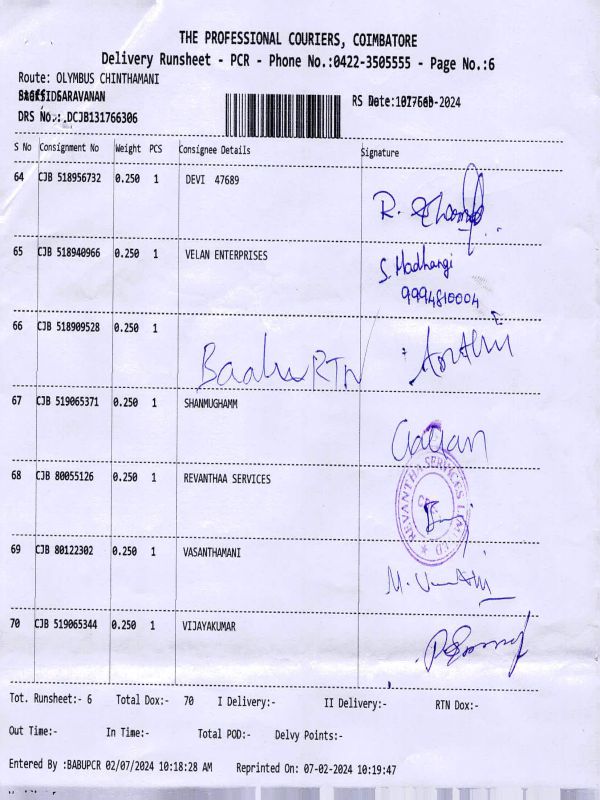 THE PROFESSIONAL COURIERS, COIMBATORE
Delivery Runsheet - PCR - Phone No.:0422-3505555 - Page No.:6
Route: OLYMBUS CHINTHAMANI
SARAVANAN
DRS No.:.DCJB131766306
S No Consignment No Weight PCS Consignee Details Signature
64 CJB 518956732 0.250 1 DEVI 47689
R.
65 CJB 518940966 0.250 1 VELAN ENTERPRISES
S. Madhangi
9994810004
66 CJB 518909528 0.250 1
RTN
67 CJB 519065371 0.250 1 SHANMUGHAMM
68 CJB 80055126 0.250 1 REVANTHAA SERVICES
69 CJB 80122302 0.250 1 VASANTHAMANI
M.
70 CJB 519065344 0.250 1 VIJAYAKUMAR
Tot. Runsheet:- 6 Total Dox:- 70 I Delivery:- II Delivery:- RTN Dox:-
Out Time:- In Time:- Total POD:- Delvy Points:-
Entered By :BABUPCR 02/07/2024 10:18:28 AM Reprinted On: 07-02-2024 10:19:47